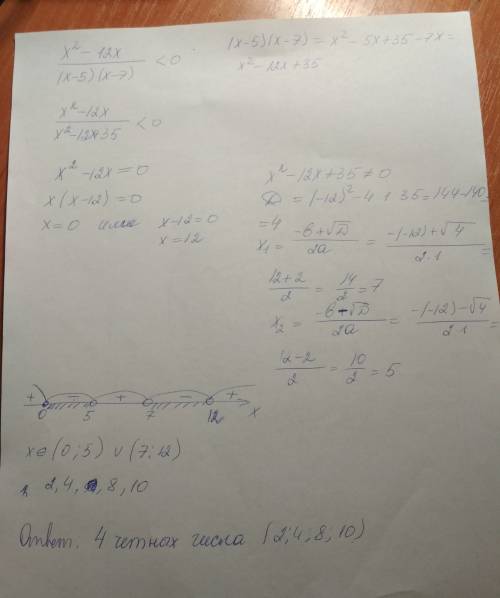 x² - 12x / (x-5)(x-7) < 0
(x-5)(x-7) = x² - 5x + 35 - 7x =
x² - 12x + 35
x² - 12x / x² - 12x + 35 < 0
x² - 12x = 0
x(x-12) = 0
x = 0 или x - 12 = 0
x = 12
x² - 12x + 35 ≠ 0
D = (-12)² - 4·1·35 = 144 - 140 =
= 4
x₁ = -b + √D / 2a = -(-12) + √4 / 2·1 =
12 + 2 / 2 = 14 / 2 = 7
x₂ = -b - √D / 2a = -(-12) - √4 / 2·1 =
12 - 2 / 2 = 10 / 2 = 5
+ - + - +
0 5 7 12 x
x ∈ (0; 5) ∪ (7; 12)
2, 4, 8, 10
Ответ. 4 четных числа (2; 4; 8; 10)